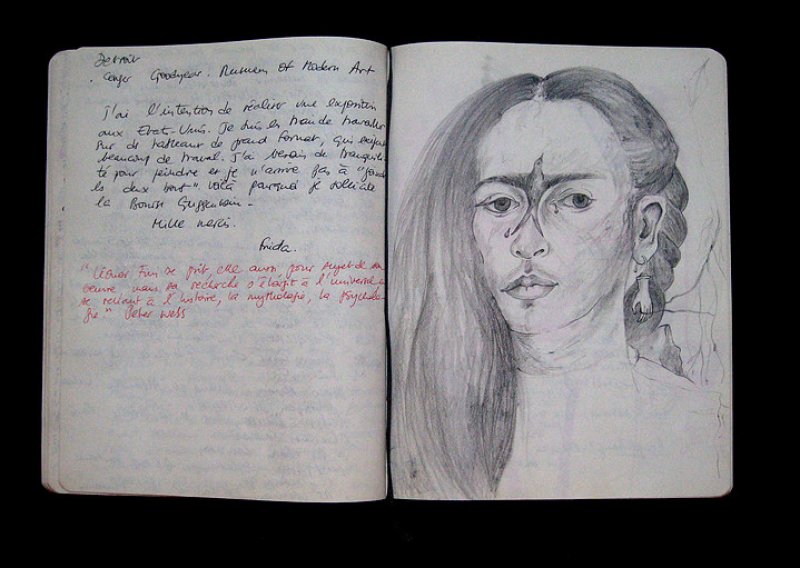 Detroit
. Conger Goodyear. Museum of Modern Art
J'ai l'intention de réaliser une exposition
aux Etat-Unis. Je suis en train de travailler
sur de tableaux de grand format, qui exigent
beaucoup de travail. J'ai besoin de tranquili-
té pour peindre et je n'arrive pas à "joindre
les deux bout" voilà pourquoi je sollicite
la Bourse Guggenheim.
Mille mercis.
Frida.
"Léonor Fini se prit, elle aussi, pour sujet de son
oeuvre mais sa recherche s'élargit à l'universel
se reliant à l'histoire, la mythologie, la psycholo-
gie" Peter Webb